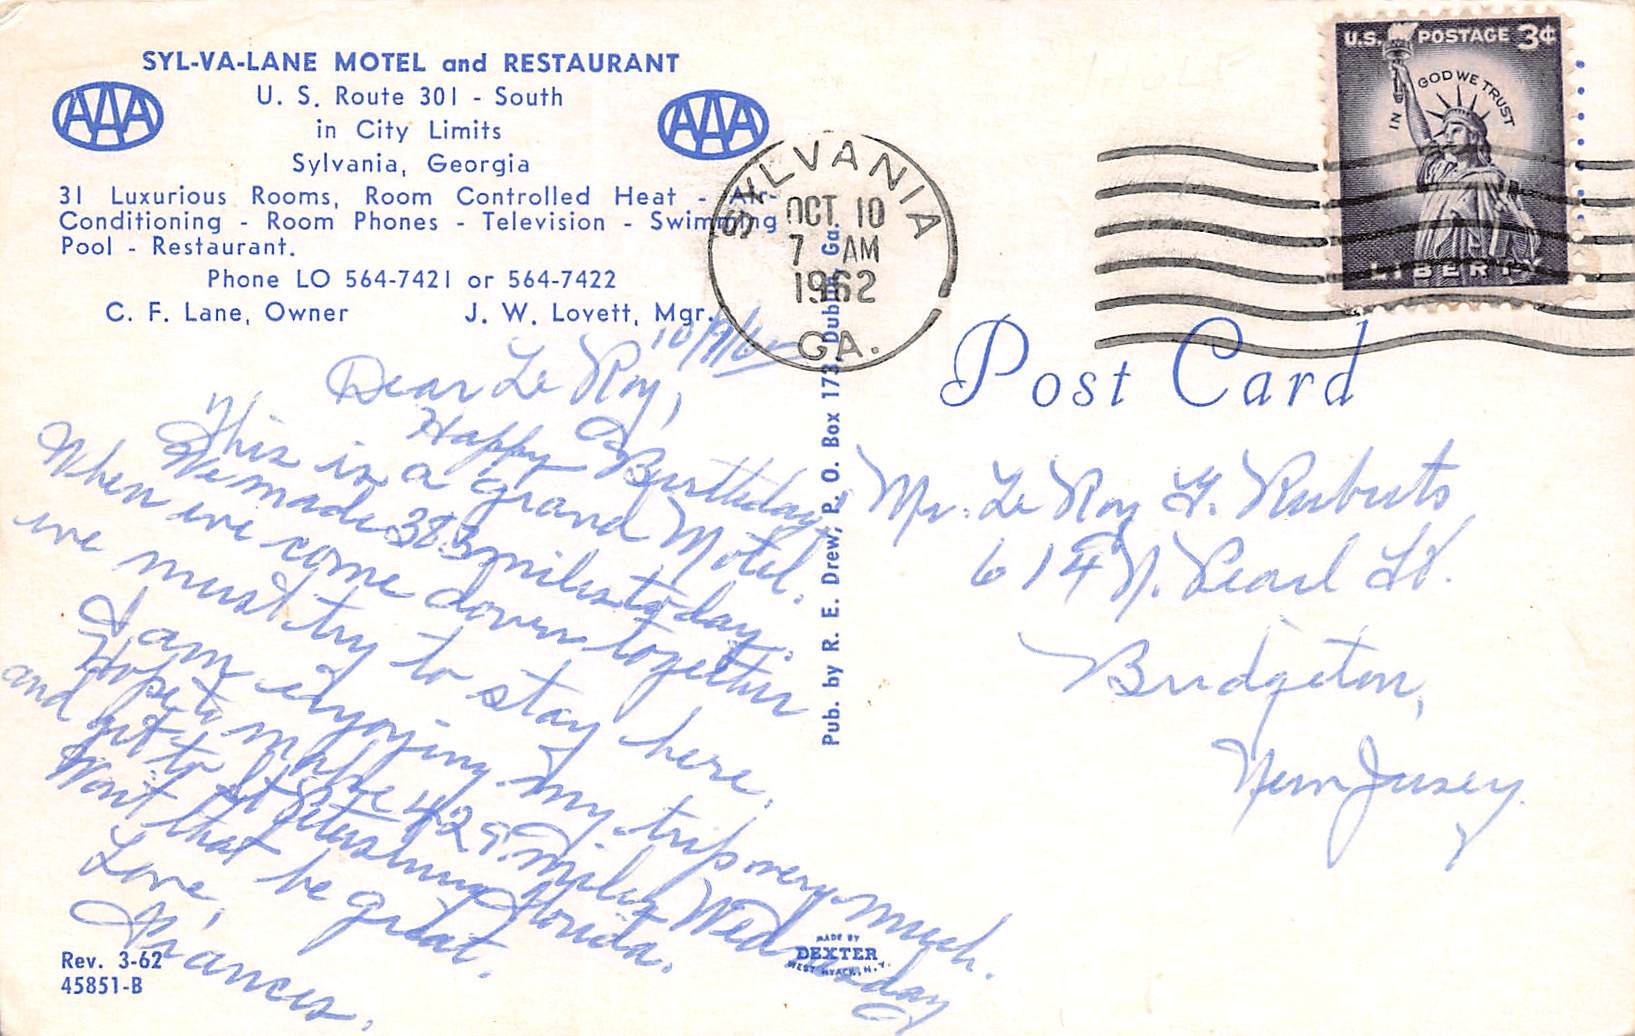 SYL-VA-LANE MOTEL and RESTAURANT
AAA
AAA
U. S. Route 301 - South
in City Limits
Sylvania, Georgia
31 Luxurious Rooms, Room Controlled Heat - Air-
Conditioning - Room Phones - Television - Swimming
Pool - Restaurant.
Phone LO 564-7421 or 564-7422
C. F. Lane, Owner
J. W. Lovett, Mgr.
10/9/62
Dear Le Roy,
Happy Birthday.
This is a grand Motel.
We made 383 miles today.
When we come down together
we must try to stay here.
I am enjoying my trip very much.
Hope to make 429 miles Wednesday
and get to St Petersburg Florida.
Wont that be great.
Love,
Frances.
Rev. 3-62
45851-B
Pub. by R. E. Drew, P. O. Box 173, Dublin, Ga.
MADE BY
DEXTER
WEST NYACK, N.Y.
SYLVANIA
OCT 10
7 AM
1962
GA.
U.S. POSTAGE 3¢
IN GOD WE TRUST
LIBERTY
Post Card
Mr. Le Roy G. Roberts
614 N. Pearl St.
Bridgeton,
New Jersey.